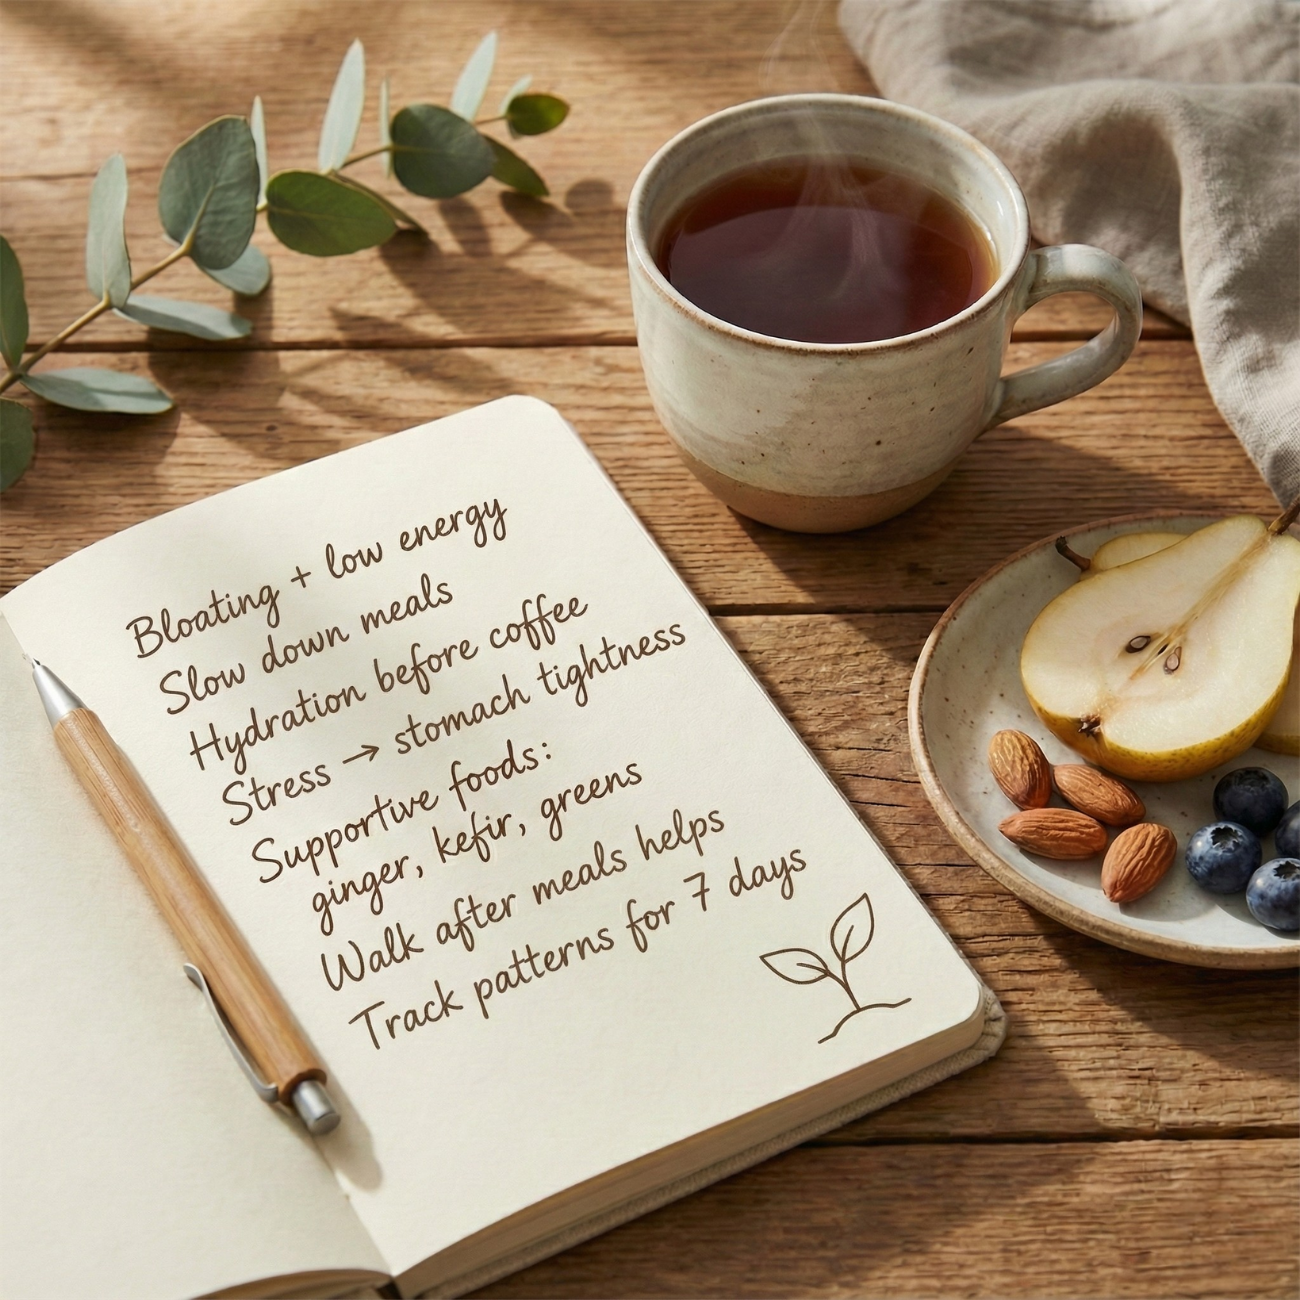 Bloating + low energy
Slow down meals
Hydration before coffee
Stress → stomach tightness
Supportive foods:
ginger, kefir, greens
Walk after meals helps
Track patterns for 7 days